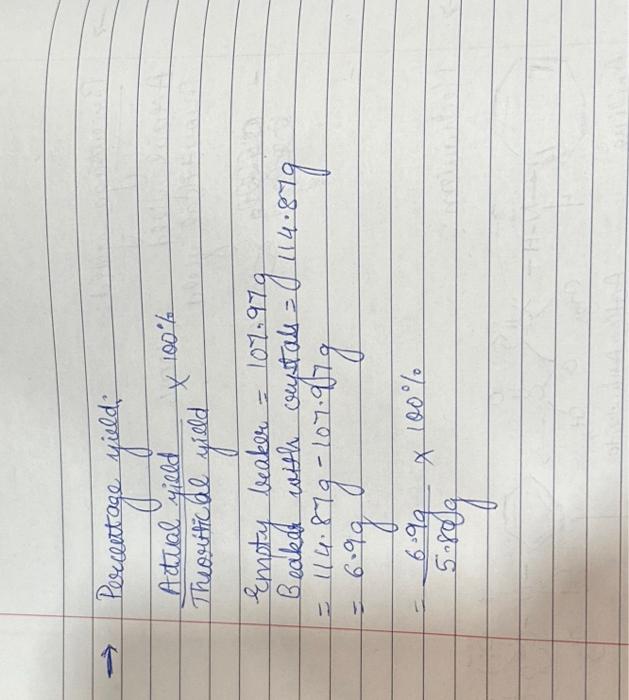 → Percentage yield:
Actual yield × 100%
Theoritical yield
Empty beaker = 107.97g
Beaker with crystals = 114.87g
= 114.87g - 107.97g
= 6.9g
= 6.9g × 100%